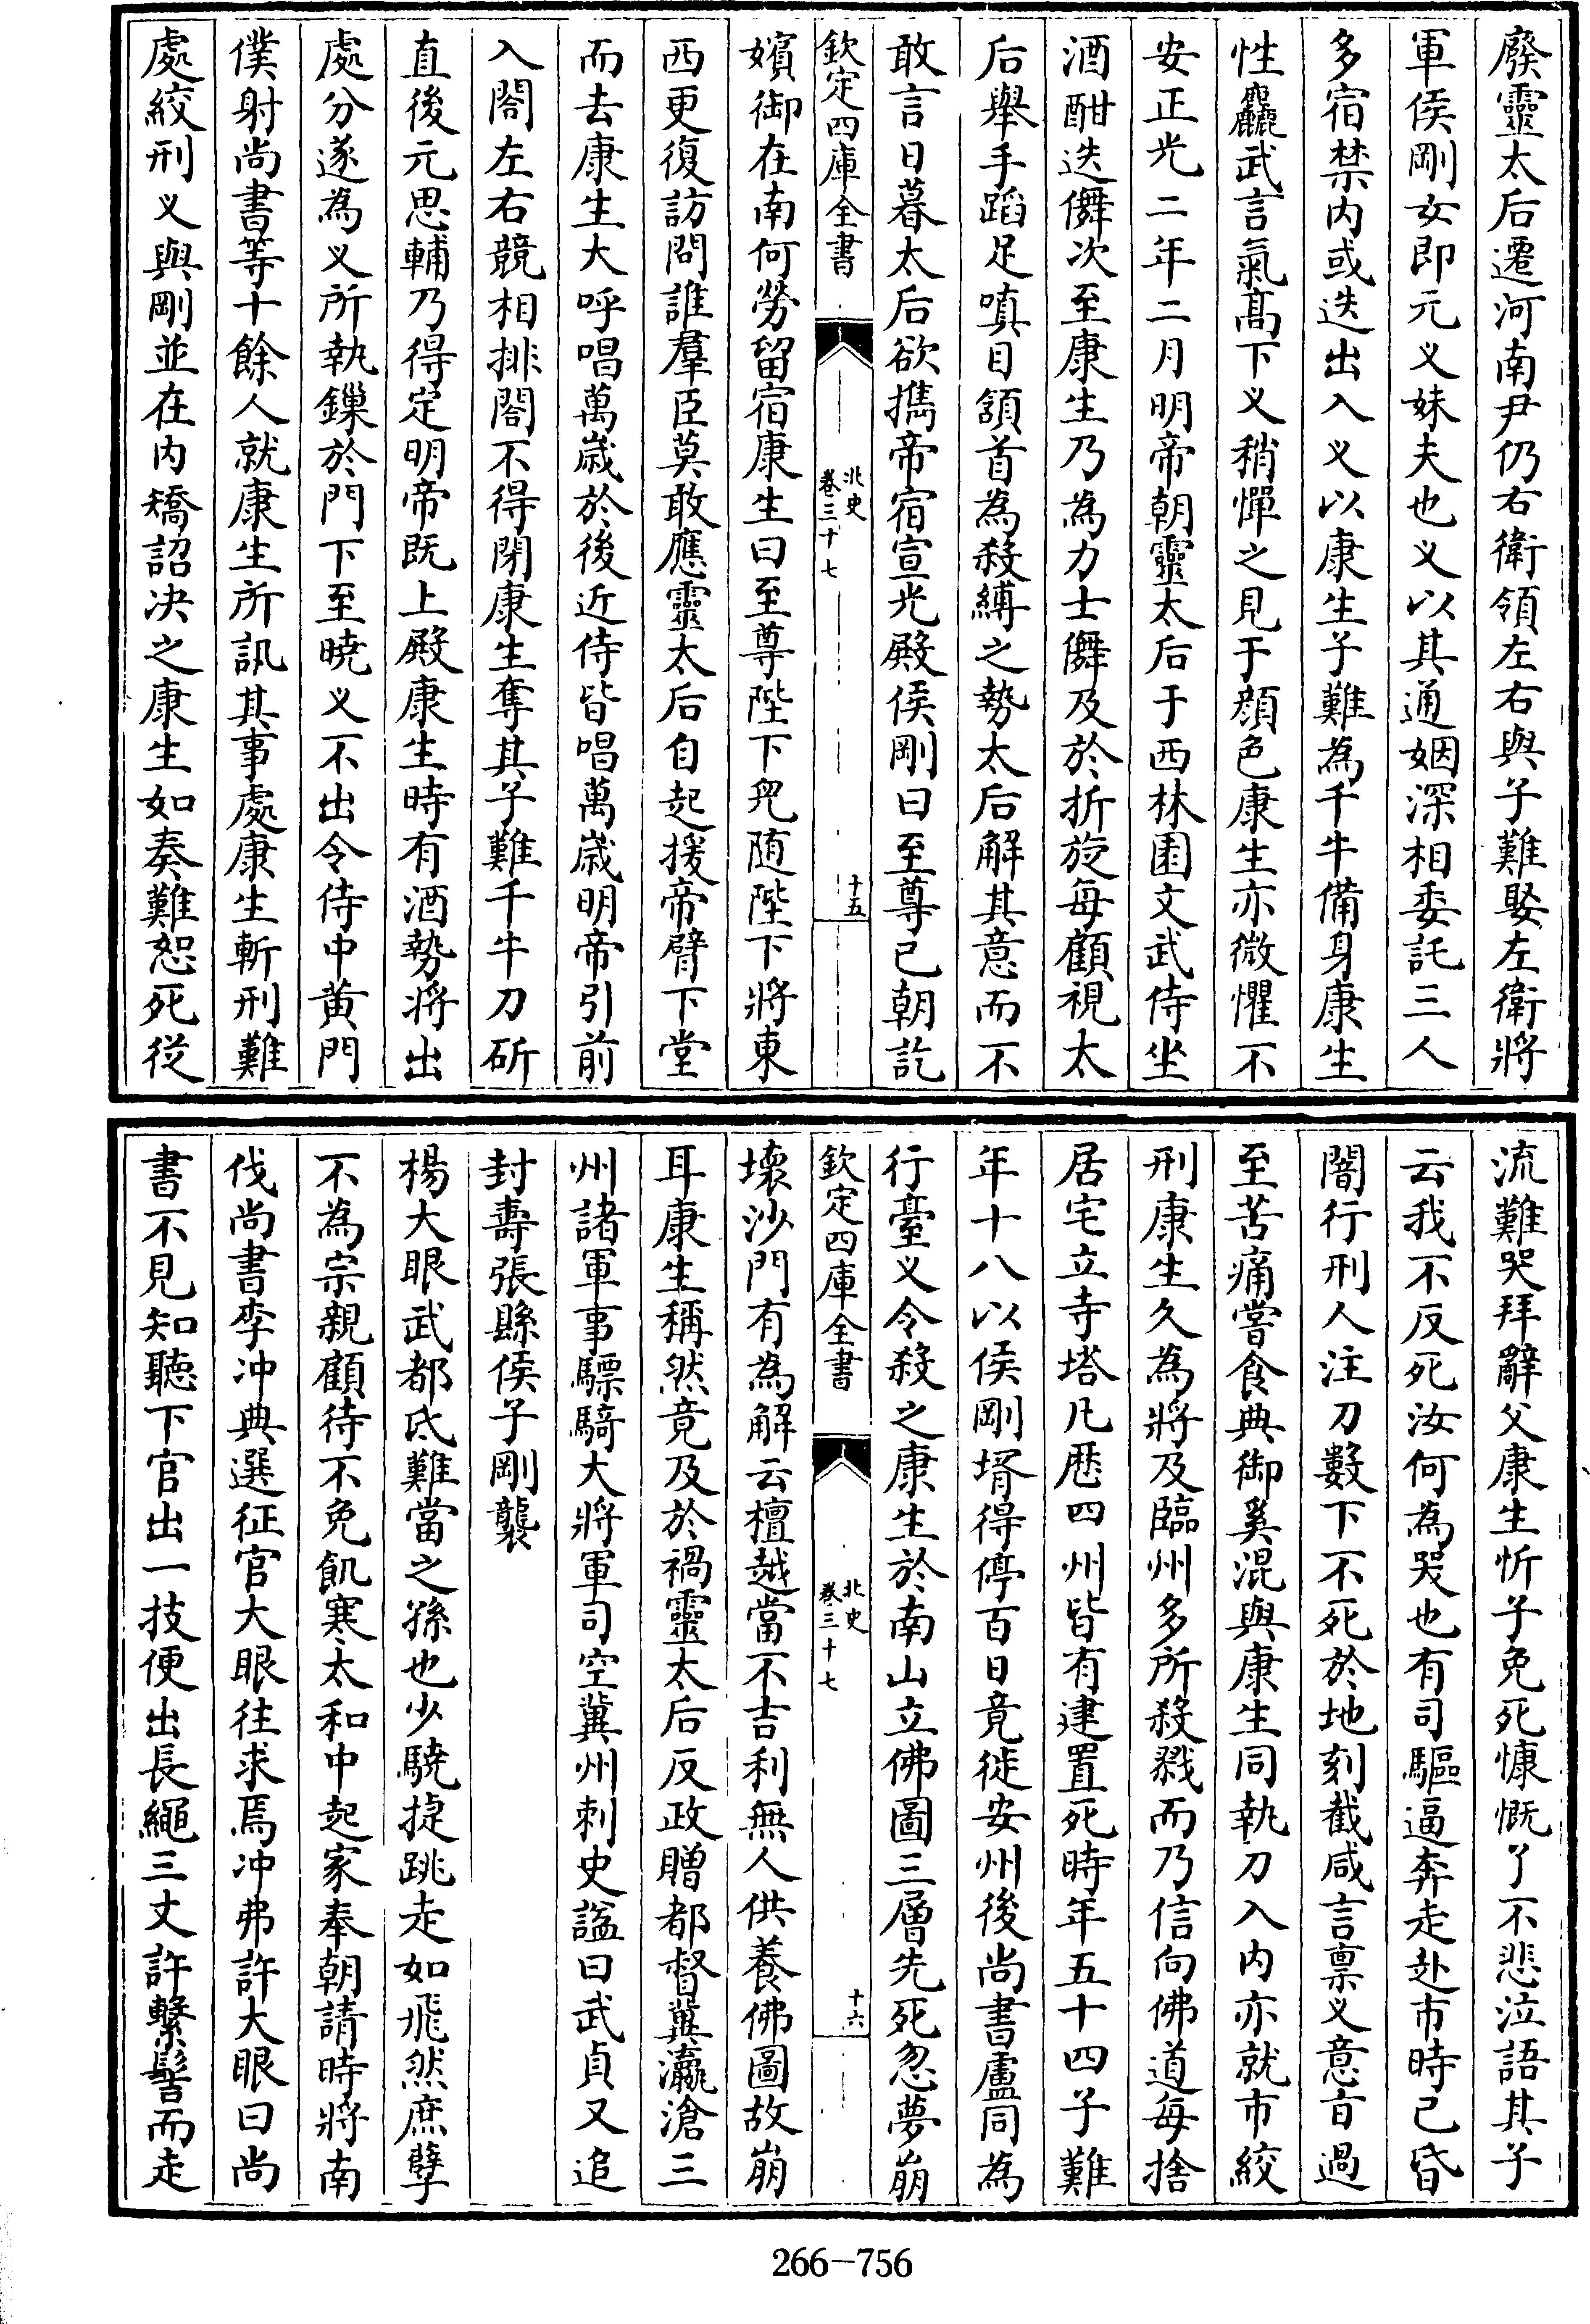 廢靈太后遷河南尹仍右衛領左右與子難娶左衛將
軍侯剛女即元义妹夫也义以其通姻深相委託三人
多宿禁内或迭出入义以康生子難為千牛備身康生
性麤武言氣髙下义稍憚之見于顔色康生亦微懼不
安正光二年二月明帝朝靈太后于西林園文武侍坐
酒酣迭儛次至康生乃為力士儛及於折旋每顧視太
后舉手蹈足嗔目頷首為殺縛之勢太后解其意而不
敢言日暮太后欲攜帝宿宣光殿侯剛曰至尊已朝訖
欽定四庫全書
北史
卷三十七
十五
嬪御在南何勞留宿康生曰至尊陛下兒随陛下將東
西更復訪問誰羣臣莫敢應靈太后自起援帝臂下堂
而去康生大呼唱萬嵗於後近侍皆唱萬嵗明帝引前
入閤左右競相排閤不得閉康生奪其子難千牛刀斫
直後元思輔乃得定明帝既上殿康生時有酒勢將出
處分遂為义所執鏁於門下至曉义不出令侍中黄門
僕射尚書等十餘人就康生所訊其事處康生斬刑難
處絞刑义與剛並在内矯詔決之康生如奏難恕死從
流難哭拜辭父康生忻子免死慷慨了不悲泣語其子
云我不反死汝何為哭也有司驅逼奔走赴市時已昏
闇行刑人注刀數下不死於地刻截咸言禀义意旨過
至苦痛嘗食典御奚混與康生同執刀入内亦就市絞
刑康生久為將及臨州多所殺戮而乃信向佛道每捨
居宅立寺塔凡歴四州皆有建置死時年五十四子難
年十八以侯剛壻得停百日竟徙安州後尚書盧同為
行臺义令殺之康生於南山立佛圖三層先死忽夢崩
欽定四庫全書
北史
卷三十七
十六
壞沙門有為解云檀越當不吉利無人供養佛圖故崩
耳康生稱然竟及於禍靈太后反政贈都督冀瀛滄三
州諸軍事驃騎大將軍司空冀州刺史諡曰武貞又追
封壽張縣侯子剛襲
楊大眼武都氐難當之孫也少驍捷跳走如飛然庶孽
不為宗親顧待不免飢寒太和中起家奉朝請時將南
伐尚書李冲典選征官大眼往求焉冲弗許大眼曰尚
書不見知聽下官出一技便出長繩三丈許繫髻而走
266-756